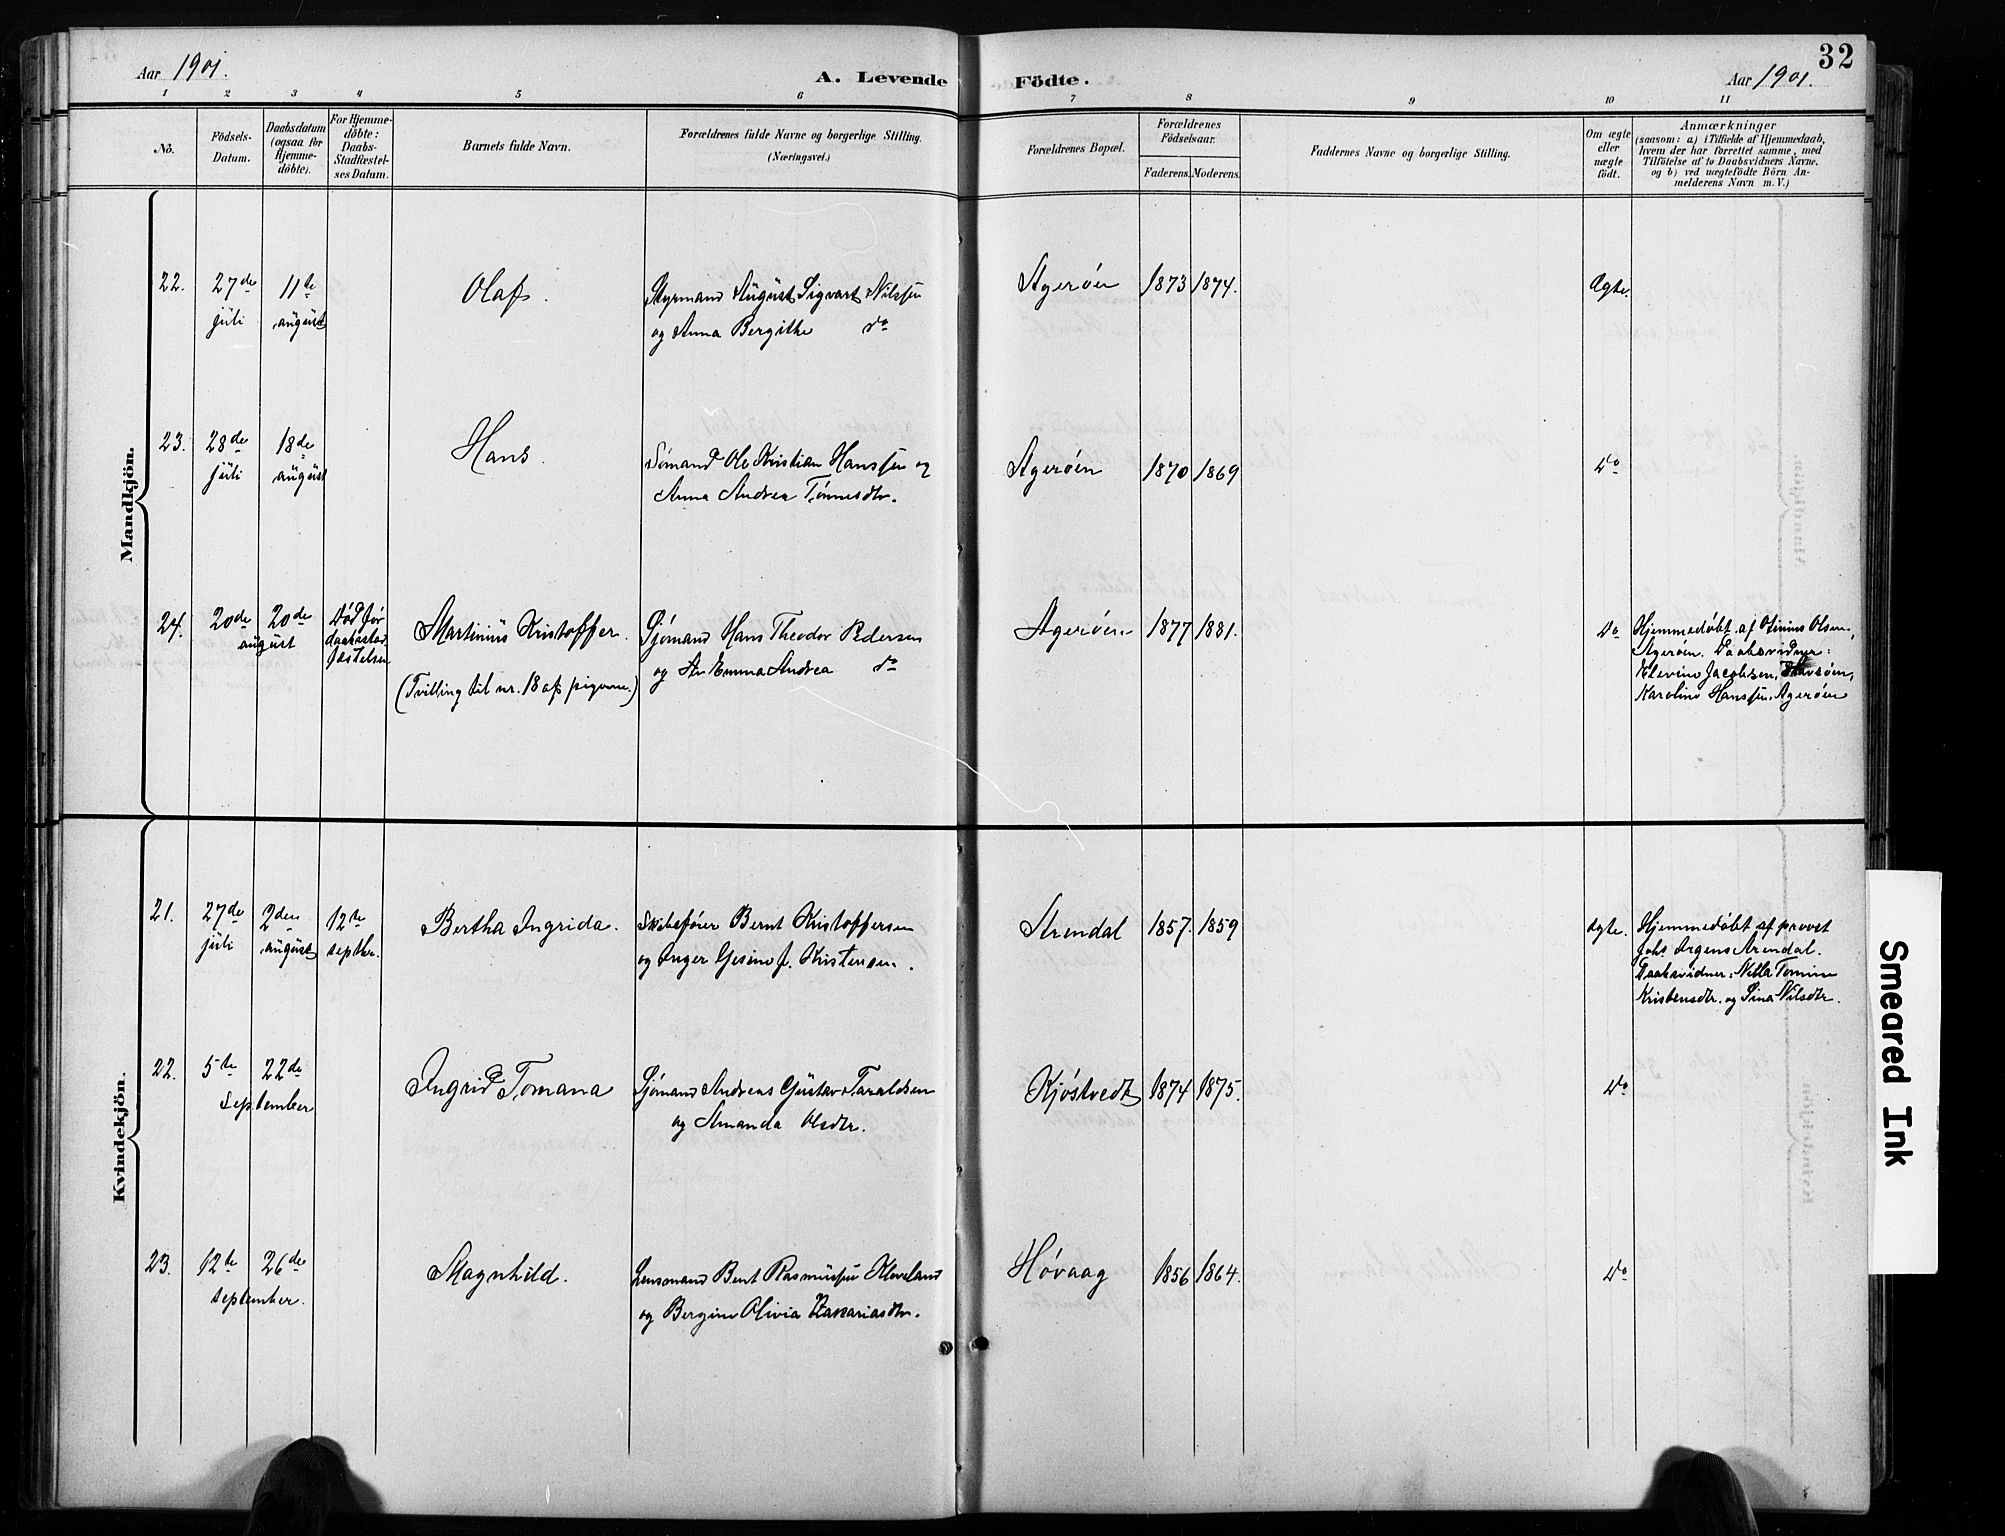 32
Aar 1901.
A. Levende Födte.
Aar 1901.
1 2 3 4 5 6 7 8 9 10 11
No.
Födsels-Datum.
Daabsdatum (ogsaa for Hjemme-döbte).
For Hjemme-döbte: Daabs-Stadfæstel-ses Datum.
Barnets fulde Navn.
Forældrenes fulde Navne og borgerlige Stilling.
(Næringsvei.)
Forældrenes Bopæl.
Forældrenes Födselsaar.
Faderens. Moderens.
Faddernes Navne og borgerlige Stilling.
Om ægte eller uægte födt.
Anmærkninger
(saasom: a) i Tilfælde af Hjemmedaab,
hvem der har forrettet samme, med
Tilföielse af to Daabsvidners Navne,
og b) ved uægtefödte Börn An-
melderens Navn m. V.)
Mandkjön.
22. 27de juli 11te august Olaf. Styrmand August Sigvart Nilssen Agerøen 1873 1874. Ægte.
og Anna Bergithe do
23. 28de juli 18de august Hans. Sømand Ole Kristian Hanssen og Agerøen 1870 1869 do
Anna Andrea Tønnesdtr.
24. 20de 20de august Død før daabsstadfæstelsen Martinius Kristoffer. Sjømand Hans Theodor Pedersen Agerøen 1877 1881. do Hjemmedøbt af Olsen,
(Tvilling til nr. 18 af pigerne.) og Emma Andrea do
Agerøen. Daabsvidner:
Elevine Jacobsen,
Karoline Hanssen, Agerøen
Kvindekjön.
21. 27de juli 2den august 12te septbr. Bertha Ingrida. Skibsfører Bernt Kristoffersen Arendal 1857. 1859 Ægte. Hjemmedøbt af provst
og Inger Gesine f. Kristensen.
Johs Irgens Arendal.
Daabsvidner: Nella Tomine
Kristensdtr. og Sina Nilsdtr.
22. 5te 22de september Ingrid Tomana Sjømand Andreas Gustav Taraldsen Kjøstvedt 1874 1875. do
og Amanda Olsdtr.
23. 12te 26de september. Magnhild. Lensmand Bent Rasmussen Kloveland Høvaag 1856 1864. do
og Bergine Olivia Zakariasdtr.
Smeared Ink